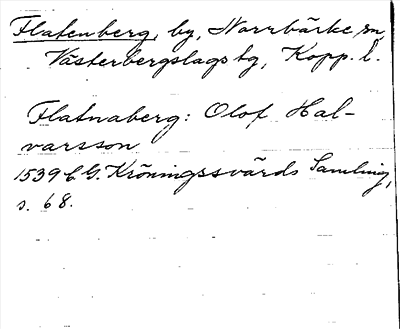 Flatenberg, by, Norrbärke sn,
Västerbergslags tg, Kopp. l.
Flatnaberg: Olof Hal-
varsson
1539 C.G. Kröningssvärds Samling,
s. 68.